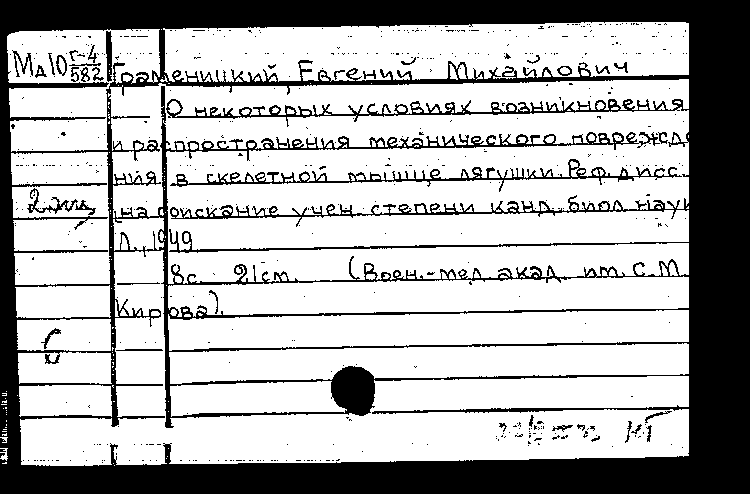 Мд10 Г-4/582 Граменицкий, Евгений Михайлович
О некоторых условиях возникновения
и распространения механического поврежде
ния в скелетной мышце лягушки. Реф. дисс.
2 экз. на соискание учен. степени канд. биол. наук
Л., 1949
8с. 21см. (Воен.-мед. акад. им. С.М.
Кирова).
б
КГ